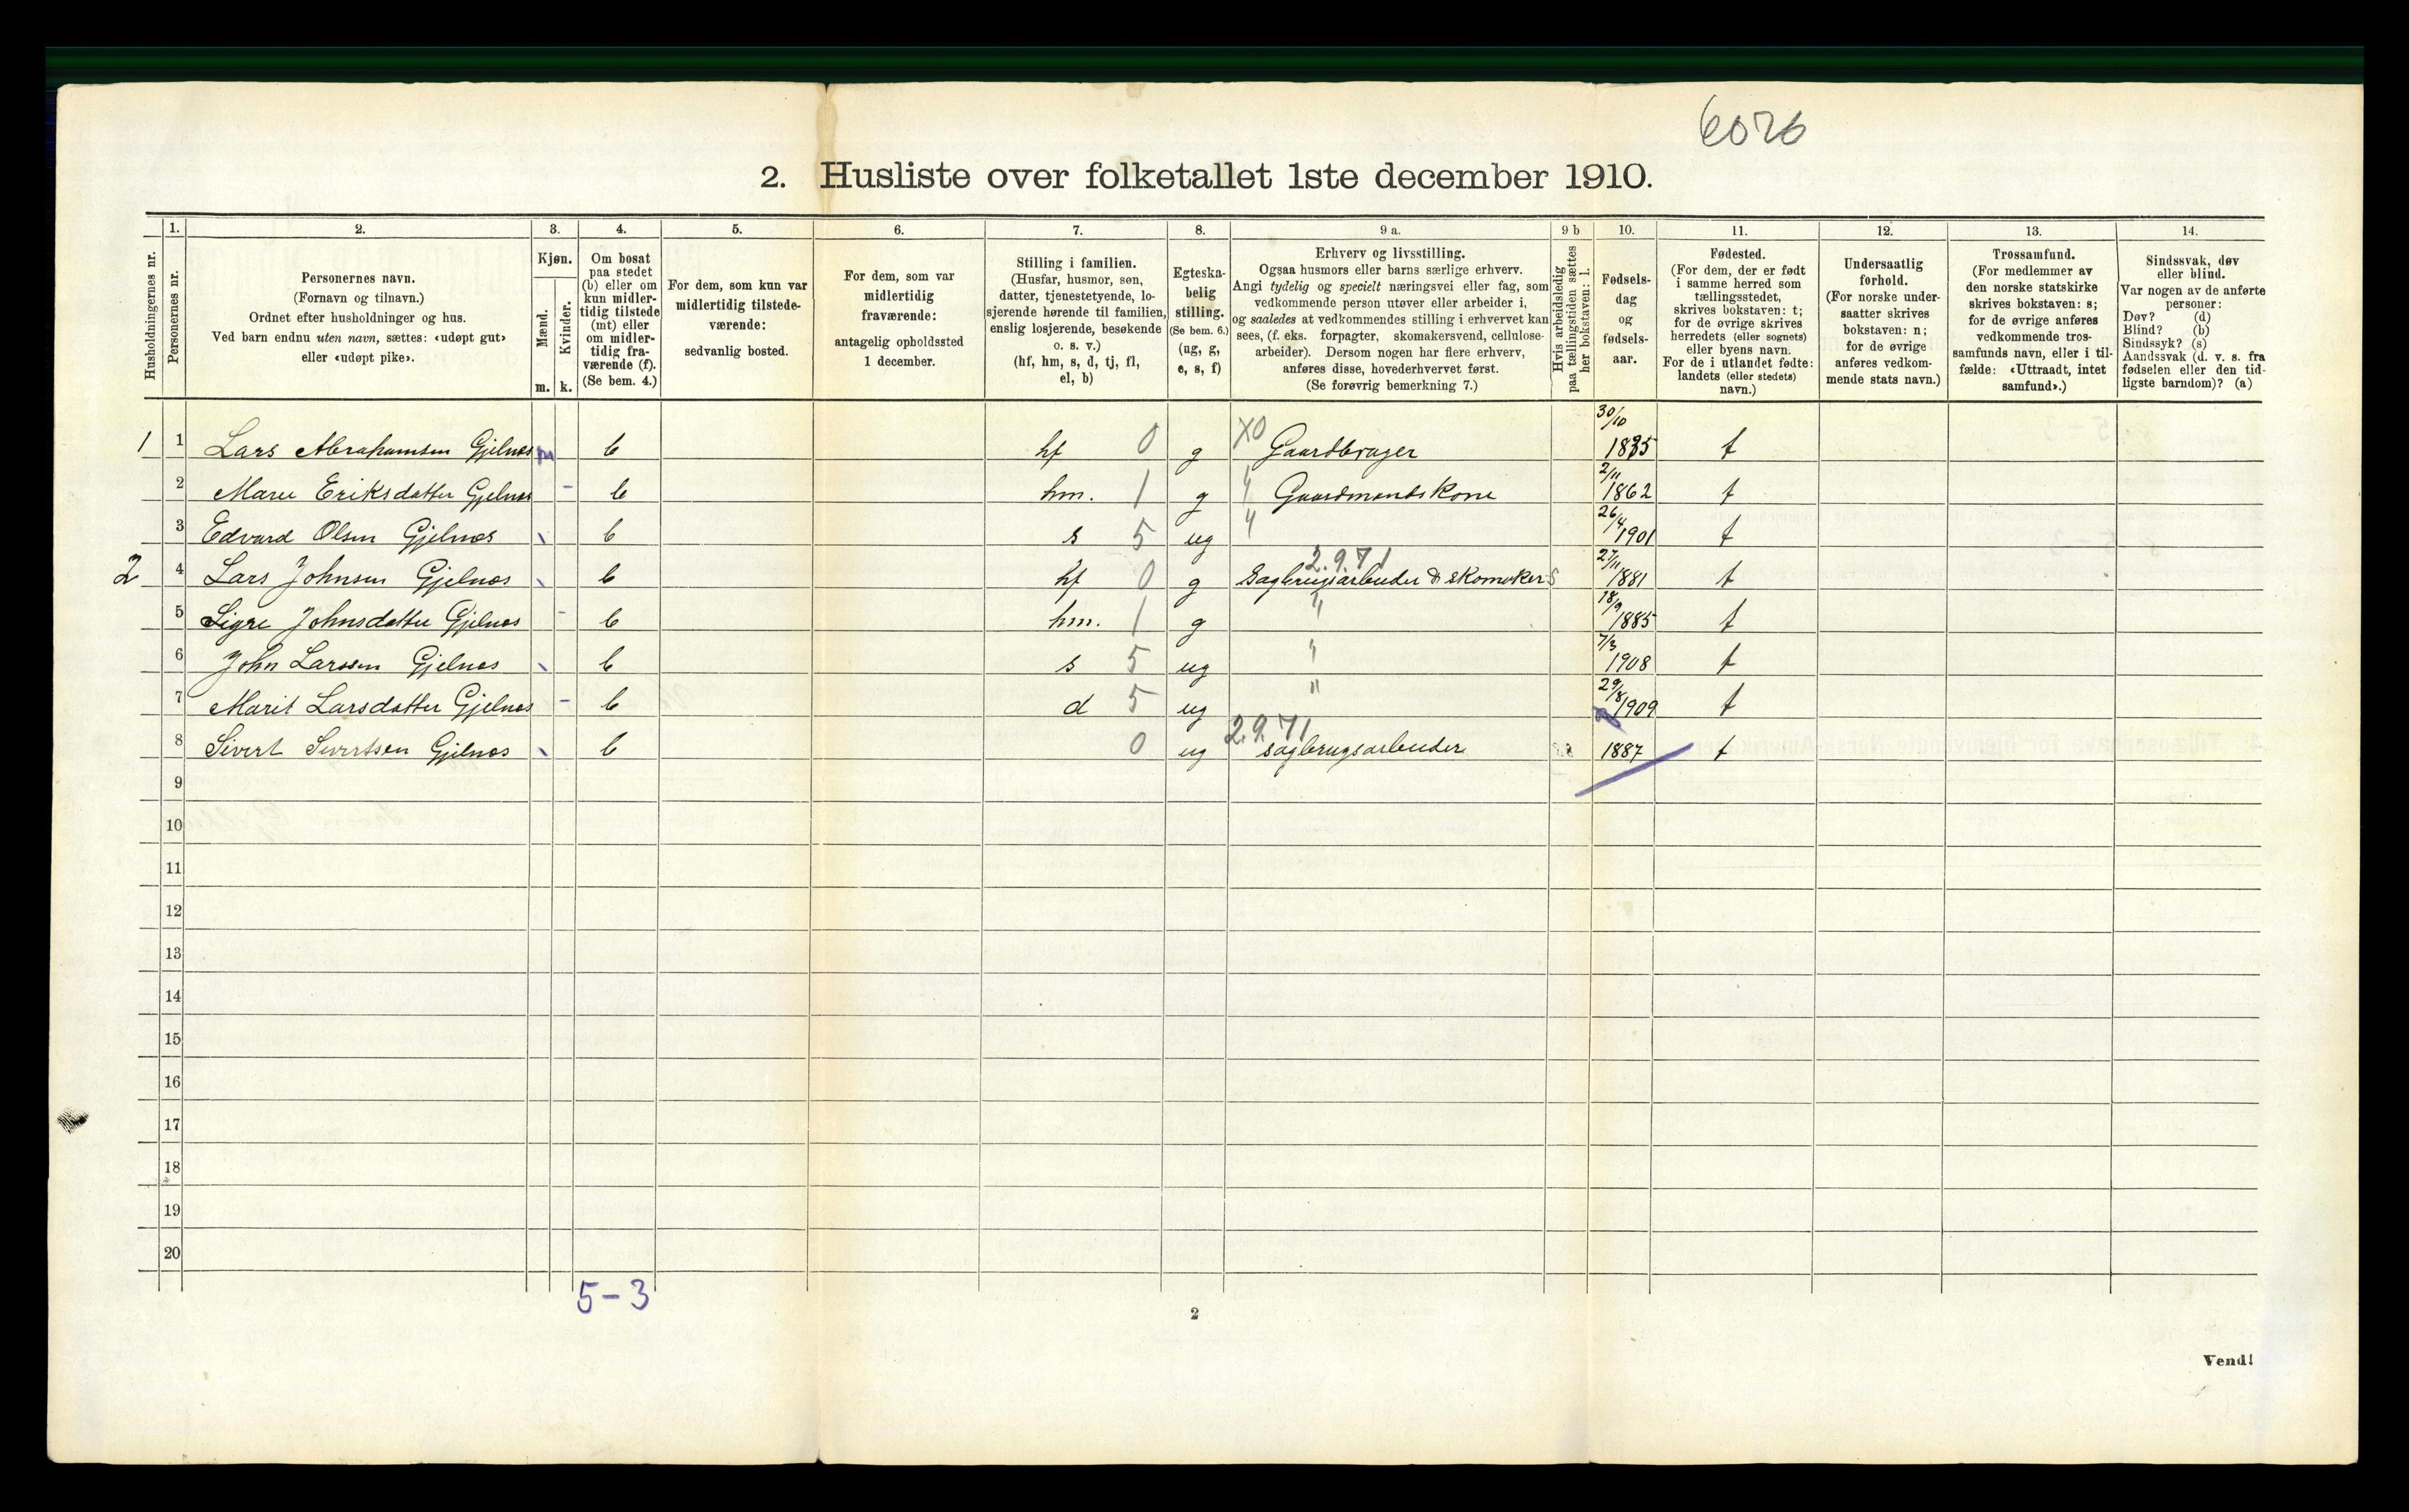 6026
2. Husliste over folketallet 1ste december 1910.
Husholdningernes nr.
1. Personernes nr.
2. Personernes navn.
(Fornavn og tilnavn.)
Ordnet efter husholdninger og hus.
Ved barn endnu uten navn, sættes: «udøpt gut»
eller «udøpt pike».
3. Kjøn.
Mænd. m.
Kvinder. k.
4. Om bosat
paa stedet
(b) eller om
kun midler-
tidig tilstede
(mt) eller
om midler-
tidig fra-
værende (f).
(Se bem. 4.)
5. For dem, som kun var
midlertidig tilstede-
værende:
sedvanlig bosted.
6. For dem, som var
midlertidig
fraværende:
antagelig opholdssted
1 december.
7. Stilling i familien.
(Husfar, husmor, søn,
datter, tjenestetyende, lo-
sjerende hørende til familien,
enslig losjerende, besøkende
o. s. v.)
(hf, hm, s, d, tj, fl,
el, b)
8. Egteska-
belig
stilling.
(Se bem. 6.)
(ug, g,
e, s, f)
9 a. Erhverv og livsstilling.
Ogsaa husmors eller barns særlige erhverv.
Angi tydelig og specielt næringsvei eller fag, som
vedkommende person utøver eller arbeider i,
og saaledes at vedkommendes stilling i erhvervet kan
sees, (f. eks. forpagter, skomakersvend, cellulose-
arbeider). Dersom nogen har flere erhverv,
anføres disse, hovederhvervet først.
(Se forøvrig bemerkning 7.)
9 b Hvis arbeidsledig
paa tællingstiden sættes
her bokstaven: l.
10. Fødsels-
dag
og
fødsels-
aar.
11. Fødested.
(For dem, der er født
i samme herred som
tællingsstedet,
skrives bokstaven: t;
for de øvrige skrives
herredets (eller sognets)
eller byens navn.
For de i utlandet fødte:
landets (eller stedets)
navn.)
12. Undersaatlig
forhold.
(For norske under-
saatter skrives
bokstaven: n;
for de øvrige
anføres vedkom-
mende stats navn.)
13. Trossamfund.
(For medlemmer av
den norske statskirke
skrives bokstaven: s;
for de øvrige anføres
vedkommende tros-
samfunds navn, eller i til-
fælde: «Uttraadt, intet
samfund».)
14. Sindssvak, døv
eller blind.
Var nogen av de anførte
personer:
Døv? (d)
Blind? (b)
Sindssyk? (s)
Aandssvak (d. v. s. fra
fødselen eller den tid-
ligste barndom)? (a)
1 1 Lars Abrahamsen Gjelnes m b hf 0 g X0 Gaardbruger 30/10 1835 t
2 Marie Eriksdatter Gjelnes - b hm. 1 g " Gaardmandskone 2/11 1862 t
3 Edvard Olsen Gjelnes b s 5 ug " 26/4 1901 t
2 4 Lars Johnsen Gjelnes b hf 0 g 2.9.71 Sagbrugsarbeider & skomaker S 27/11 1881 t
5 Sigre Johnsdatter Gjelnes - b hm. 1 g " 18/9 1885 t
6 John Larssen Gjelnes b s 5 ug " 7/3 1908 t
7 Marit Larsdatter Gjelnes - b d 5 ug " 29/8 1909 t
8 Sivert Sivertsen Gjelnes b 0 ug 2.9.71 sagbrugsarbeider 1887 t
9
10
11
12
13
14
15
16
17
18
19
20
5-3
2
Vend!